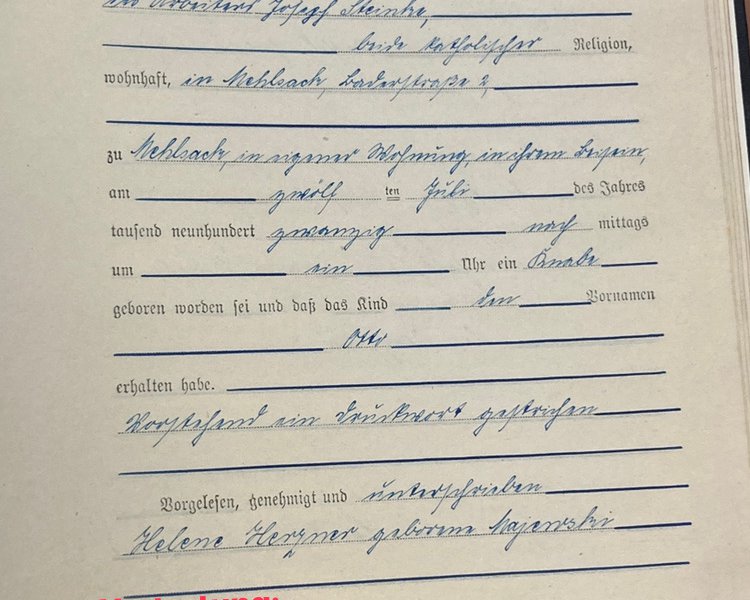 des Arbeiters Joseph Steinke,
beide katholischer Religion,
wohnhaft, in Mehlsack, Baderstraße 2,
zu Mehlsack, in eigener Wohnung, in ihrem Beisein,
am zwölf ten Juli des Jahres
tausend neunhundert zwanzig nach mittags
um ein Uhr ein Knabe
geboren worden sei und daß das Kind den Vornamen
Otto
erhalten habe.
Vorstehend ein Druckwort gestrichen
Vorgelesen, genehmigt und unterschrieben
Helene Herzner geborene Majewski